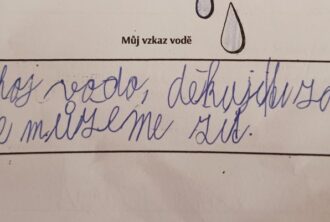 Můj vzkaz vodě
hoj vodo, děkuji ti za
e můžeme žít.